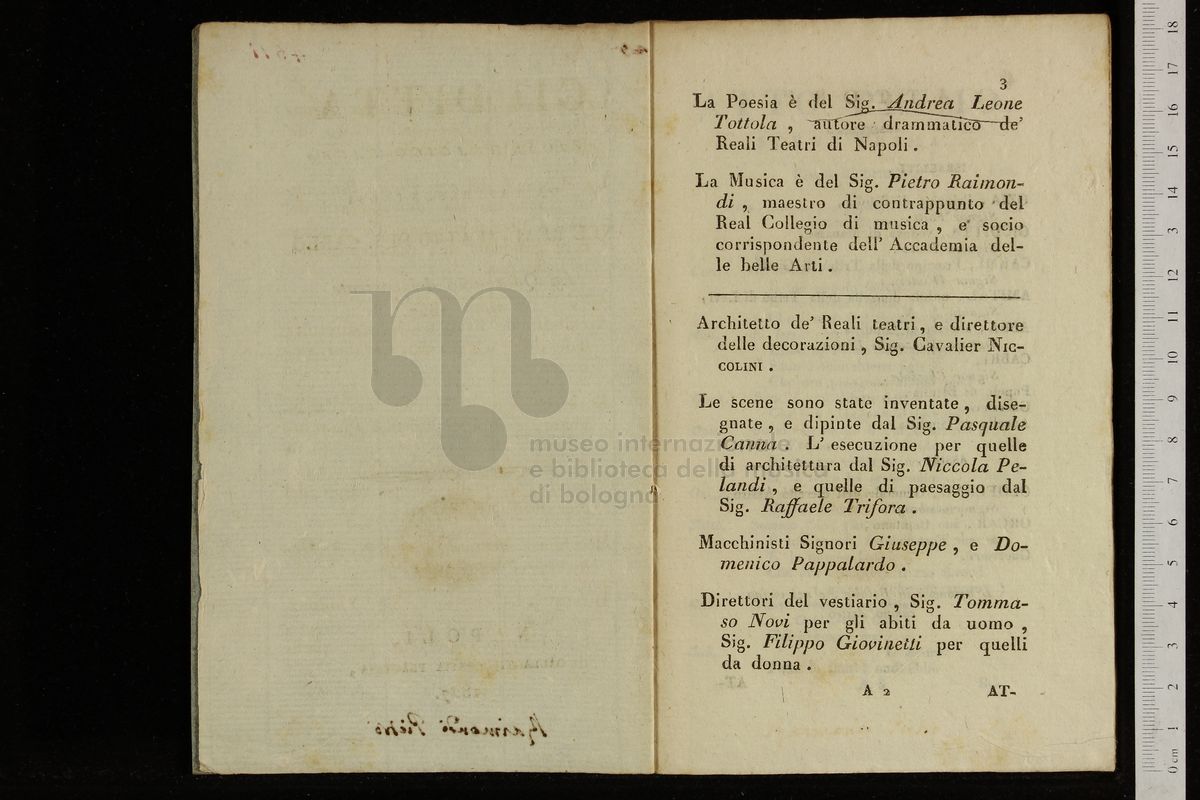 3
La Poesia è del Sig. Andrea Leone
Tottola , autore drammatico de'
Reali Teatri di Napoli .
La Musica è del Sig. Pietro Raimon-
di , maestro di contrappunto del
Real Collegio di musica , e socio
corrispondente dell' Accademia del-
le belle Arti .
Architetto de' Reali teatri , e direttore
delle decorazioni , Sig. Cavalier NIC-
COLINI .
Le scene sono state inventate , dise-
gnate , e dipinte dal Sig. Pasquale
Canna . L' esecuzione per quelle
di architettura dal Sig. Niccola Pe-
landi , e quelle di paesaggio dal
Sig. Raffaele Trifora .
Macchinisti Signori Giuseppe , e Do-
menico Pappalardo .
Direttori del vestiario , Sig. Tomma-
so Novi per gli abiti da uomo ,
Sig. Filippo Giovinetti per quelli
da donna .
A 2 AT-
museo internazionale
e biblioteca della musica
di bologna
Raimondi Pietro
NAPOLI,
0 cm 1 2 3 4 5 6 7 8 9 10 11 12 13 14 15 16 17 18